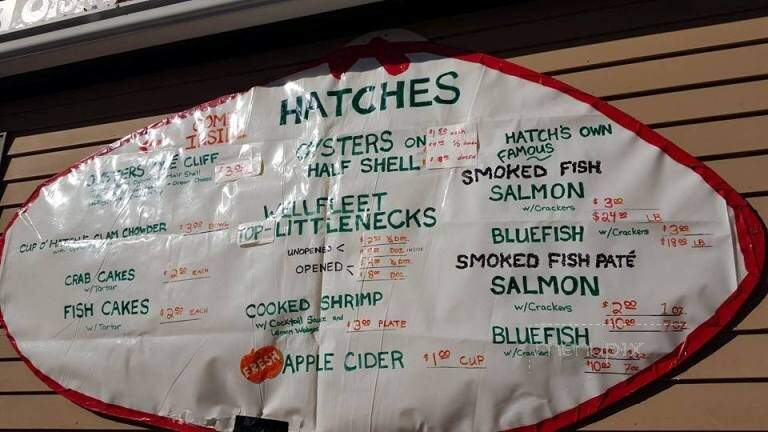 HATCHES
COME
INSIDE
OYSTERS CLIFF
Half Shell
$3.00
CUP O' HATCH'S CLAM CHOWDER $3.00 BOWL
CRAB CAKES $2.50 EACH
w/Tartar
FISH CAKES $2.50 EACH
w/Tartar
OYSTERS ON
HALF SHELL
$1.50 each
WELLFLEET
TOP-LITTLENECKS
UNOPENED <
OPENED <
$8.00 DOZ
COOKED SHRIMP
w/ Cocktail Sauce and
Lemon Wedge
$3.00 PLATE
FRESH APPLE CIDER $1.00 CUP
HATCH'S OWN
FAMOUS
SMOKED FISH
SALMON
w/Crackers $3.00
$24.00 LB
BLUEFISH w/Crackers $3.00
$18.00 LB
SMOKED FISH PATÉ
SALMON
w/Crackers $2.00 1 oz
$10.00 7oz
BLUEFISH
w/Crackers
$10.00 7oz